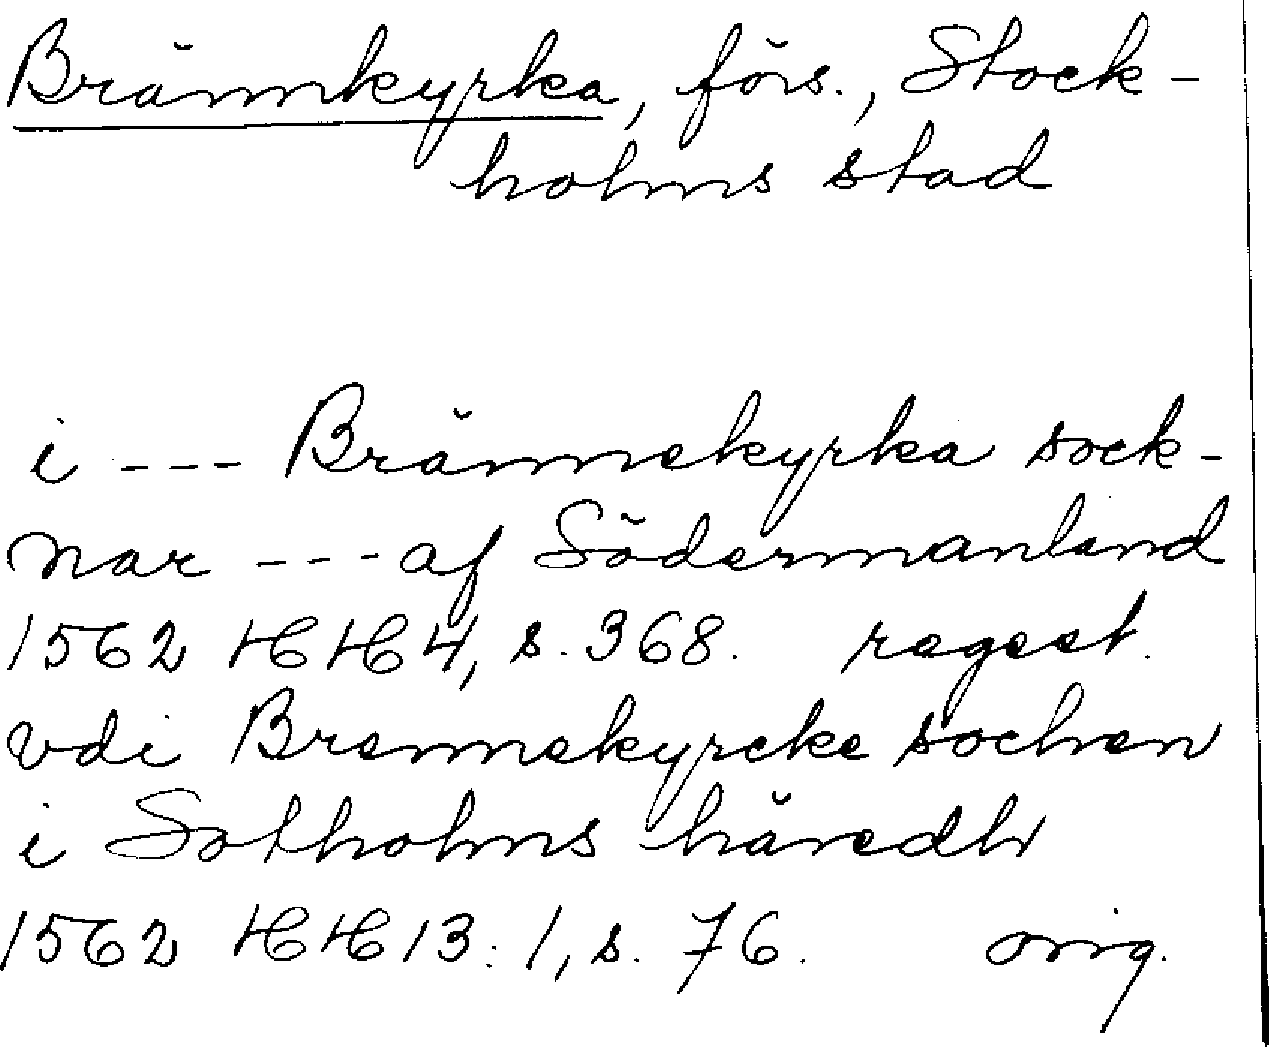 Brännkyrka, förs., Stock-
holms stad
i --- Brännekyrka sock-
nar --- af Södermanland
1562 HH 4, s. 368. regest.
vdi Brennekyrcke sochen
i Sotholms häredh
1562 HH 13:1, s. 76. orig.